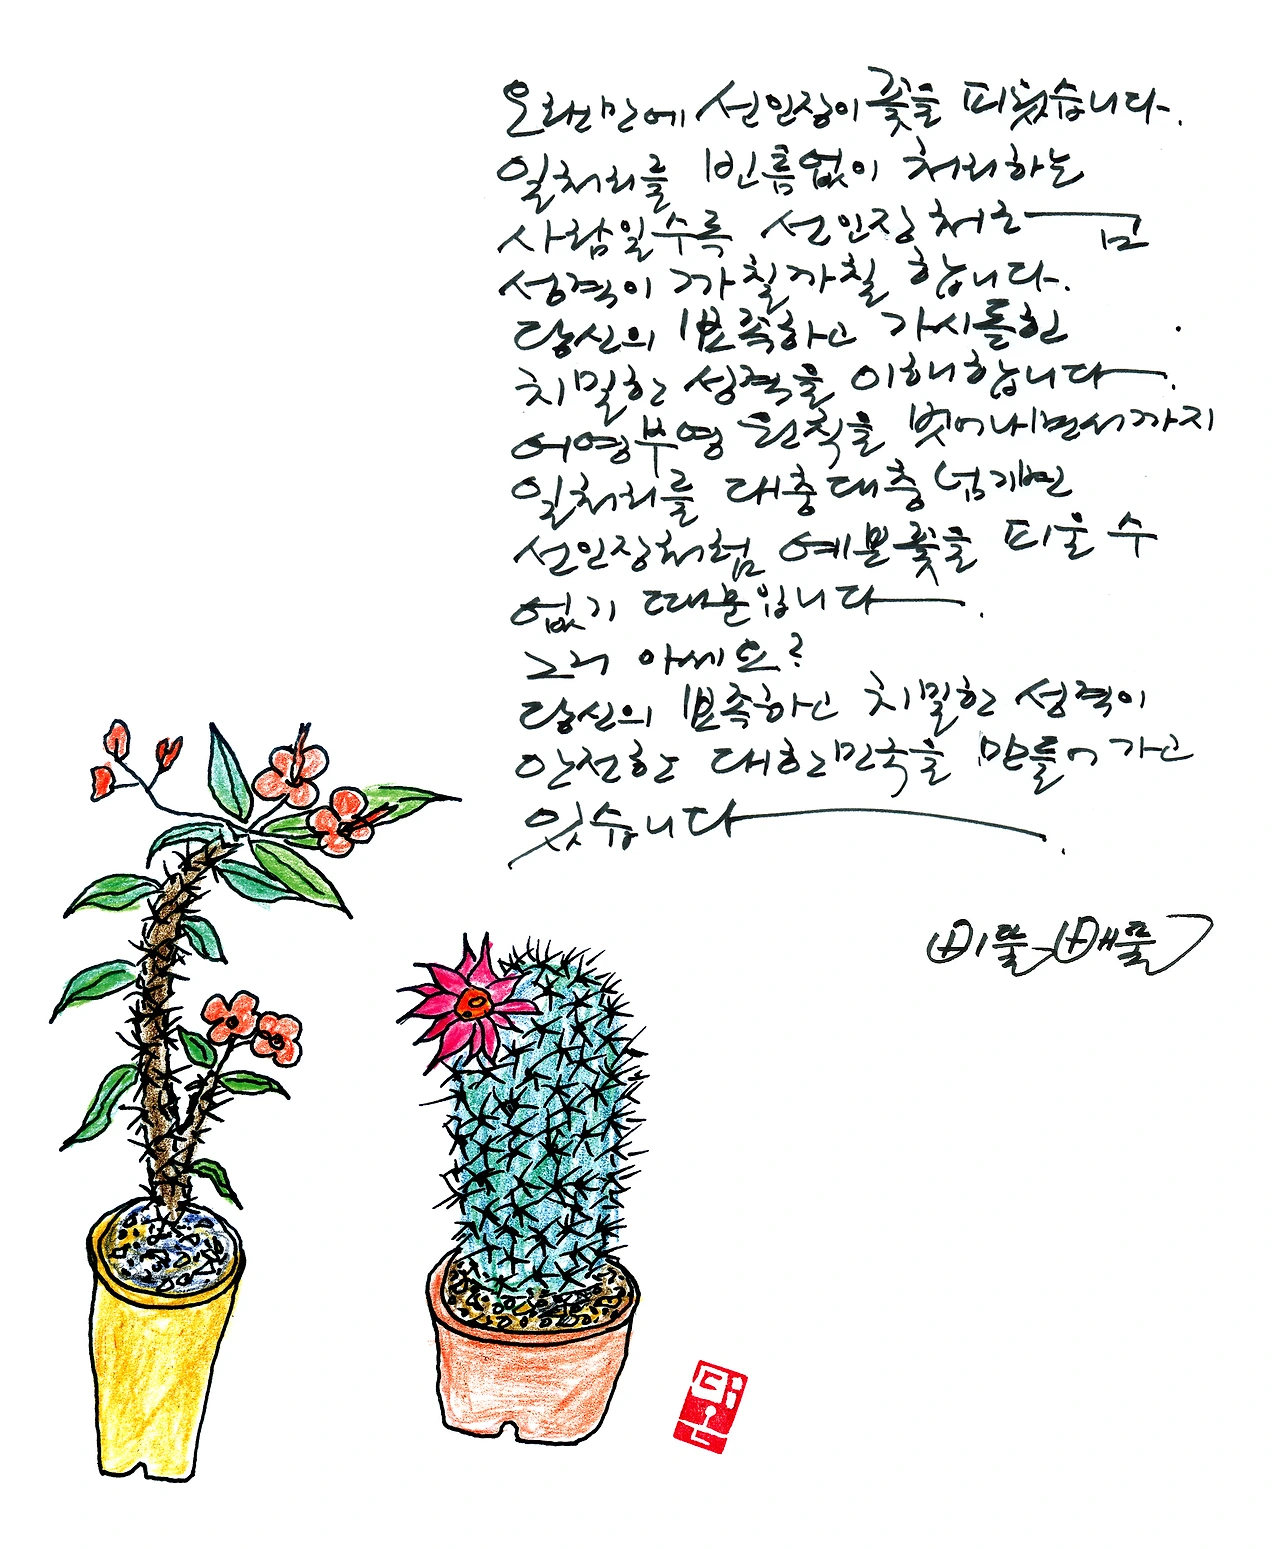 오랜만에 선인장이 꽃을 피웠습니다.
일처리를 빈틈없이 처리하는
사람일수록 선인장처럼
성격이 까칠까칠 합니다.
당신의 뾰족하고 가시돋힌
치밀한 성격을 이해합니다.
어영부영 원칙을 벗어나면서까지
일처리를 대충대충 넘기면
선인장처럼 예쁜꽃을 피울 수
없기 때문입니다.
그거 아세요?
당신의 뾰족하고 치밀한 성격이
안전한 대한민국을 만들어 가고
있습니다.